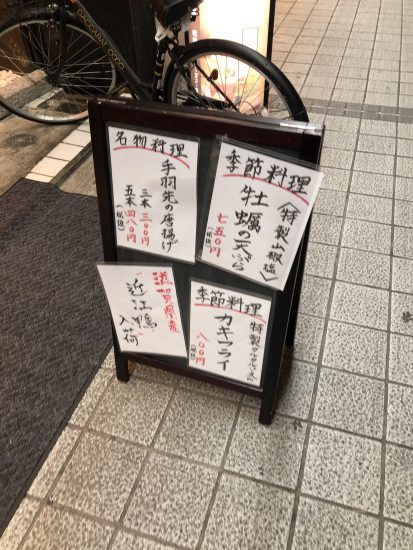 名物料理
手羽先の唐揚げ
三本 三〇〇円
五本 四八〇円
(税抜)
季節料理
〈特製山椒塩〉
牡蠣の天ぷら
七五〇円
(税抜)
滋賀県産
“近江鴨”
入荷
季節料理
特製タルタルソースの
カキフライ
八〇〇円
(税抜)